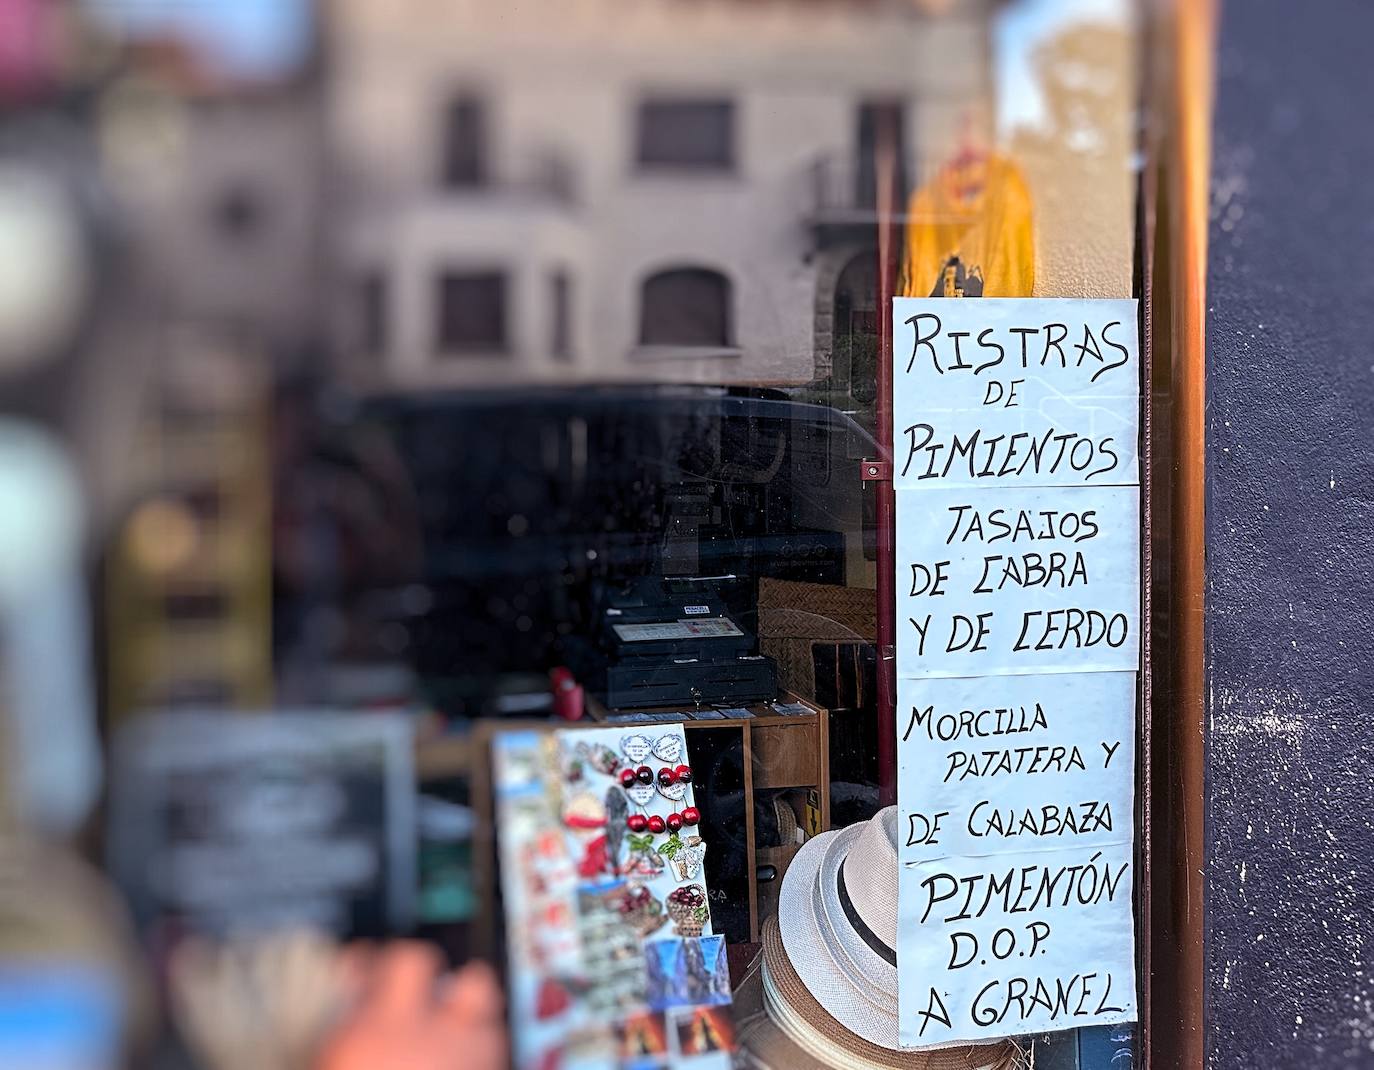 RISTRAS
DE
PIMIENTOS
TASAJOS
DE CABRA
Y DE CERDO
MORCILLA
PATATERA Y
DE CALABAZA
PIMENTÓN
D.O.P.
A GRANEL